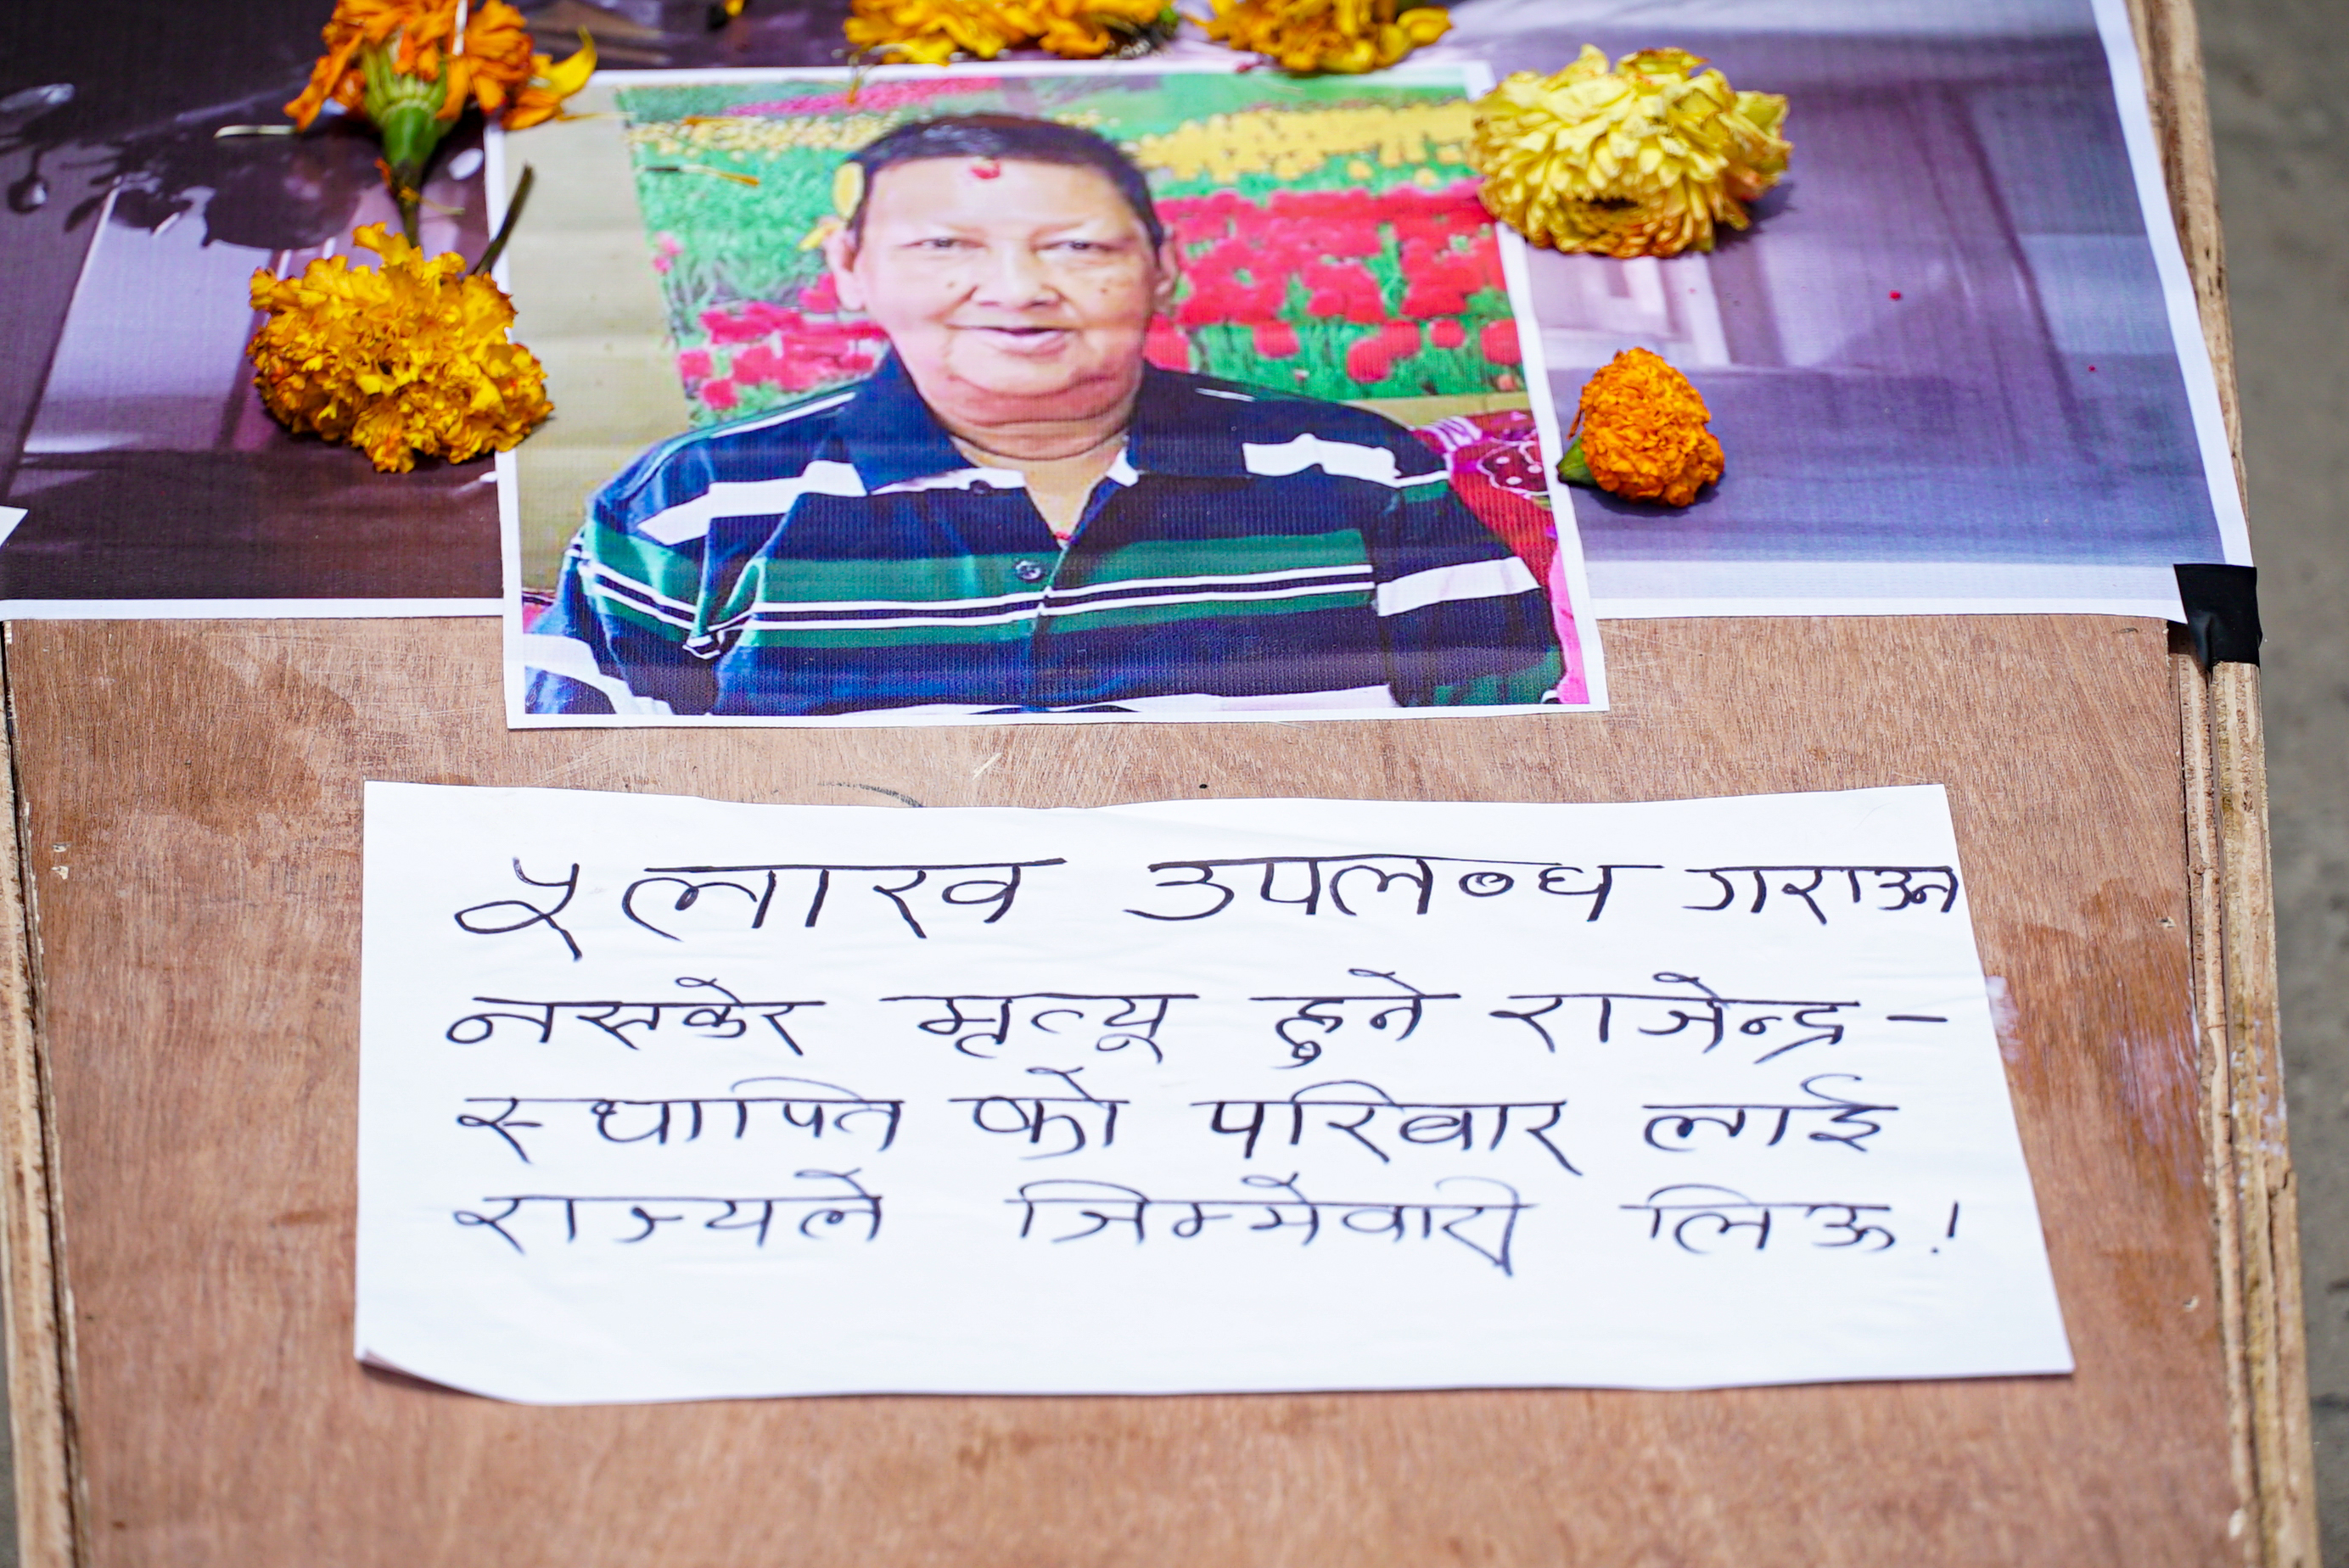 ५ लाख उपलब्ध गराउन
नसकेर मृत्यू हुने राजेन्द्र-
स्थापित को परिवार लाई
राज्यले जिम्मेवारी लिऊ !